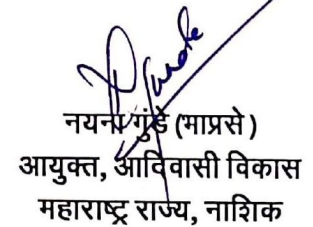 नयना गुंडे (भाप्रसे)
आयुक्त, आदिवासी विकास
महाराष्ट्र राज्य, नाशिक